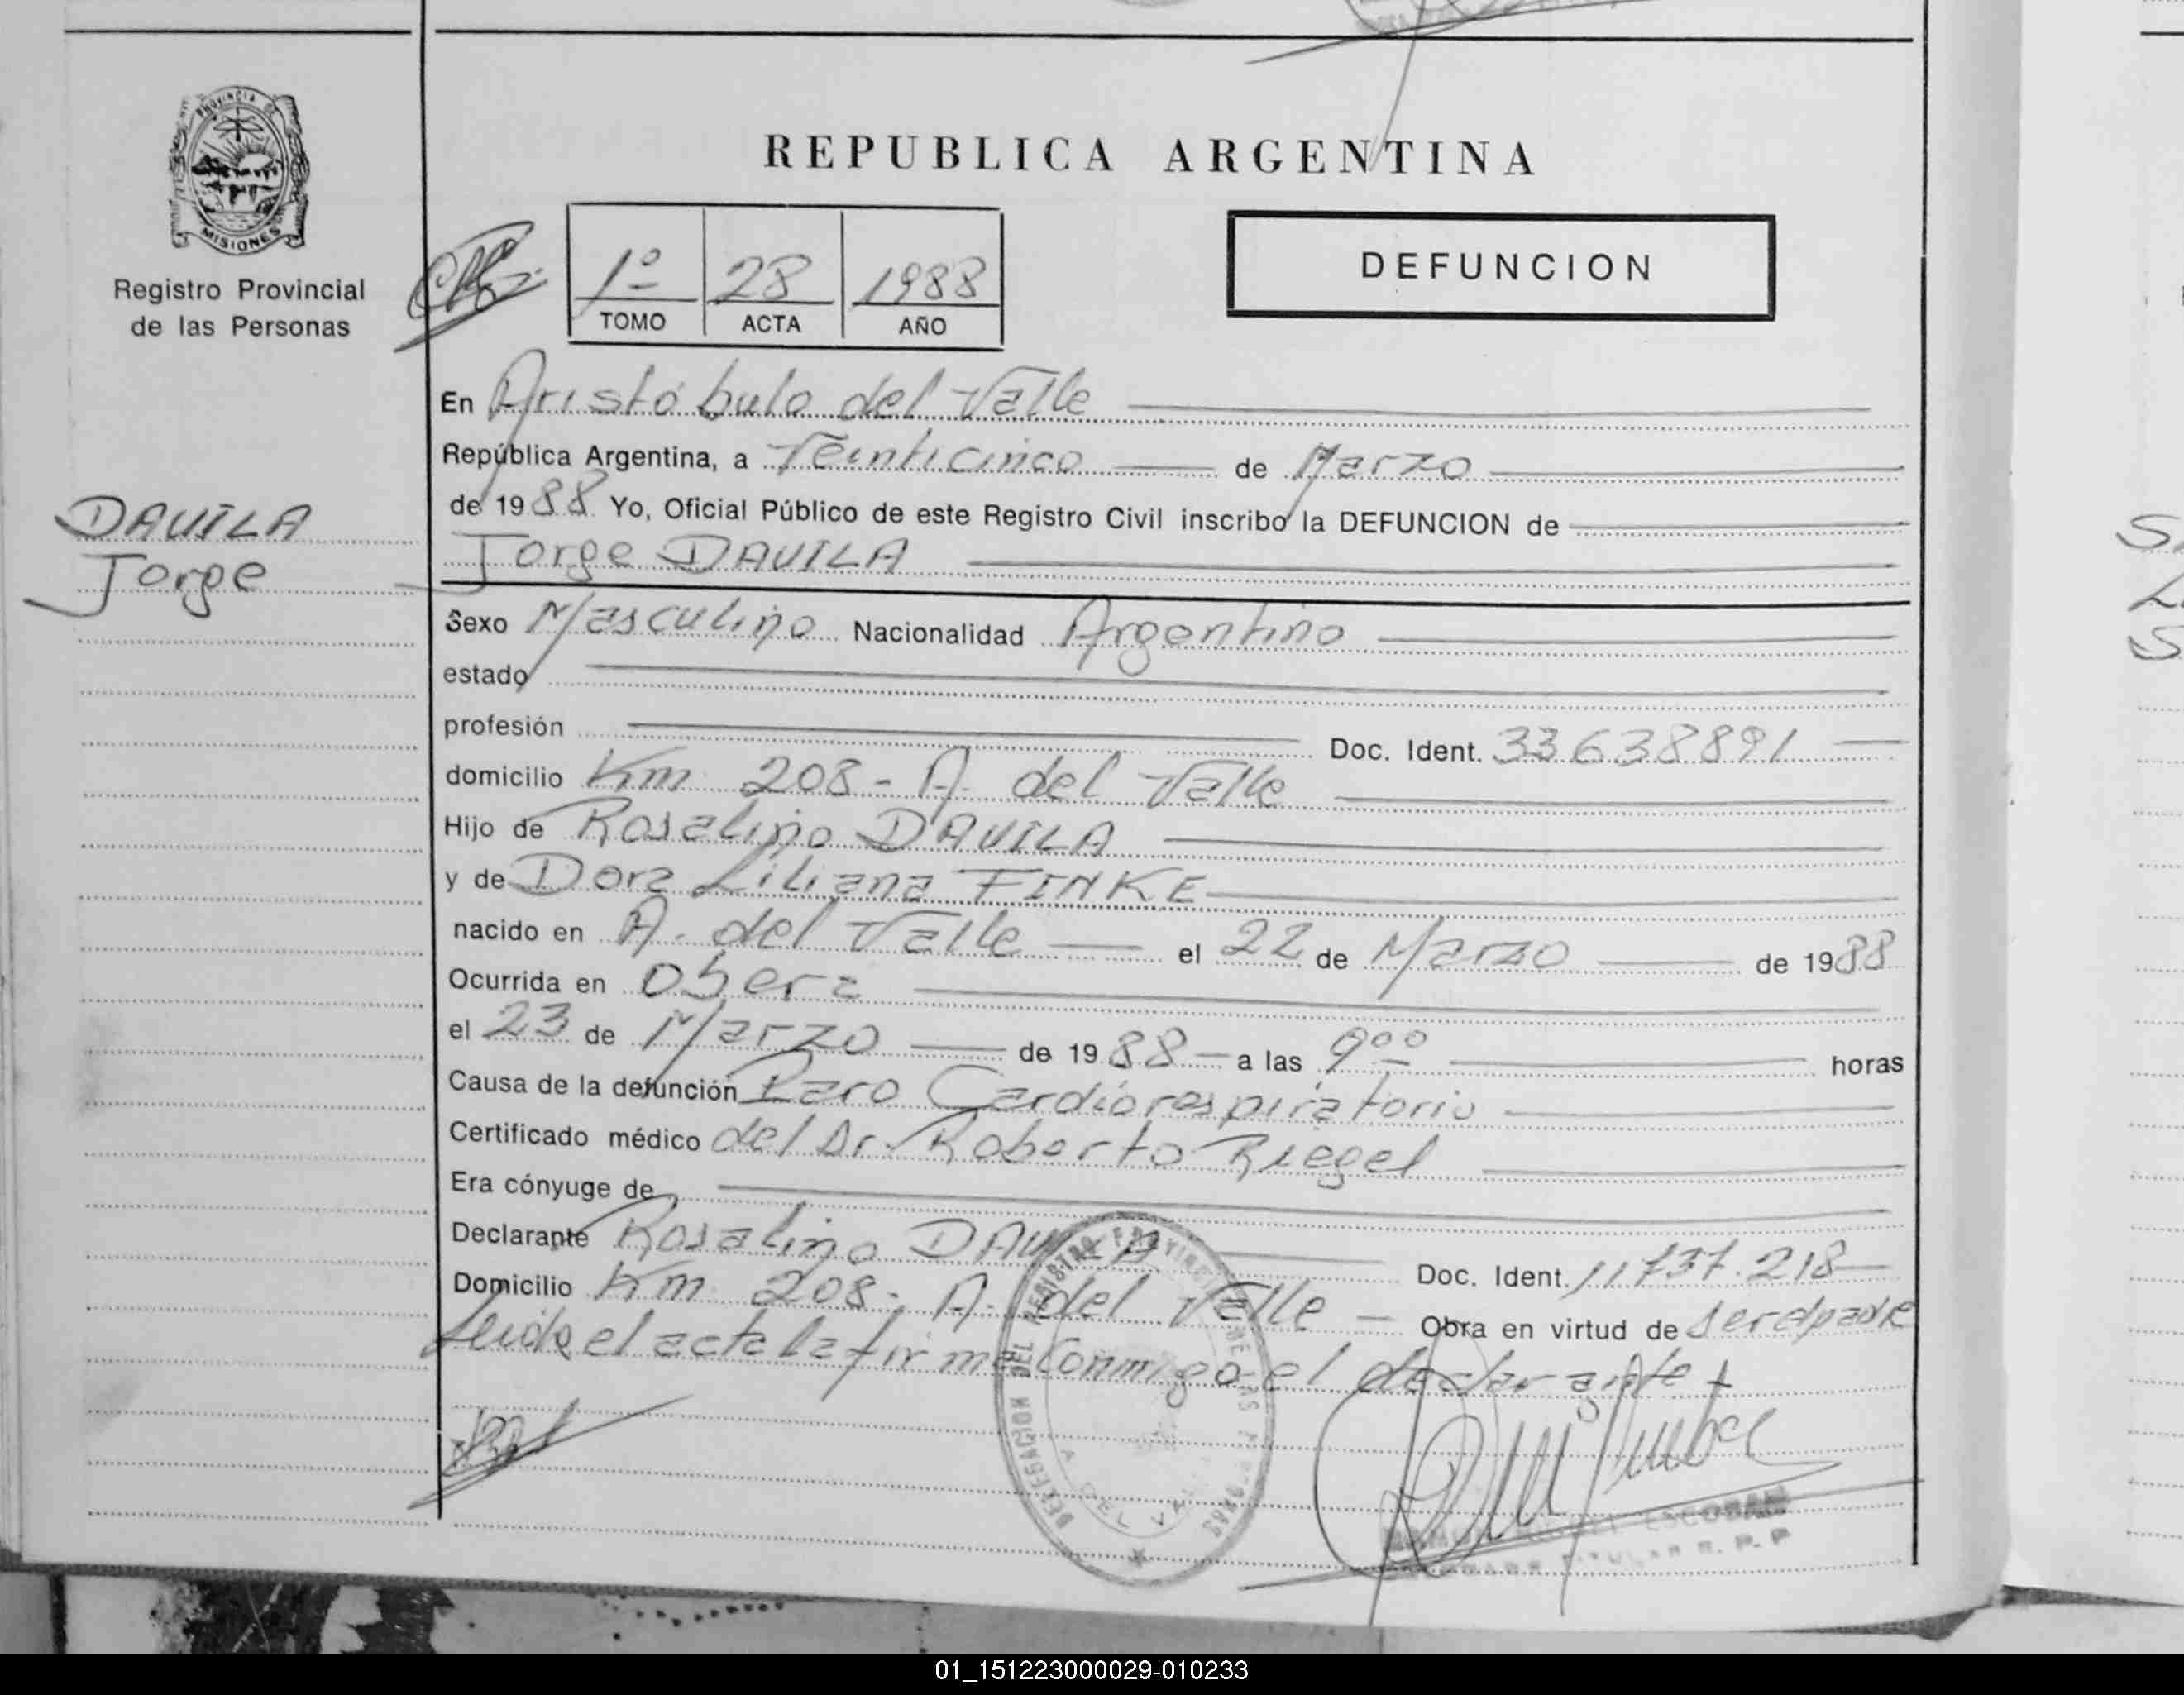 PROVINCIA DE
MISIONES
Registro Provincial
de las Personas
REPUBLICA ARGENTINA
1º 28 1988
TOMO ACTA AÑO
DEFUNCION
En Aristóbulo del Valle
República Argentina, a Veinticinco de Marzo
de 1988 Yo, Oficial Público de este Registro Civil inscribo la DEFUNCION de
Jorge DAVILA
DAVILA
Jorge
Sexo Masculino Nacionalidad Argentino
estado
profesión Doc. Ident. 33638891
domicilio Km 208 - A. del Valle
Hijo de Rosalino DAVILA
y de Dora Liliana FINKE
nacido en A. del Valle el 22 de Marzo de 1988
Ocurrida en Obera
el 23 de Marzo de 1988 a las 9⁰⁰ horas
Causa de la defunción Paro Cardiorespiratorio
Certificado médico del Dr. Roberto Riegel
Era cónyuge de
Declarante Rosalino DAVILA Doc. Ident. 11737.218
Domicilio Km 208 - A. del Valle Obra en virtud de ser el padre
Leida el acta la firma conmigo el declarante
DELEGACION DEL REGISTRO PROVINCIAL DE LAS PERSONAS
A. DEL VALLE
ESCOBAR
TITULAR R. P. P
01_151223000029-010233